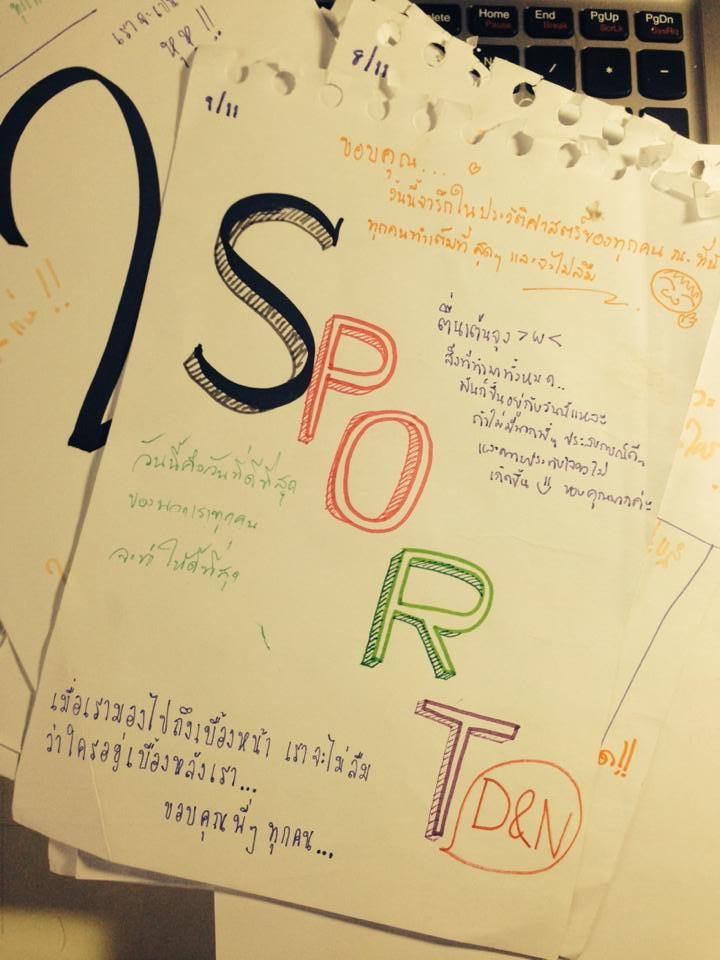 Home
End
PgUp
PgDn
Break
ScrLk
SysRq
/
*
-
หุหุ!!
8/11
9/11
ขอบคุณ...
วันนี้จารึกในประวัติศาสตร์ของทุกคน ณ ที่นี้
ทุกคนทำเต็มที่ สุดๆ และจะไม่ลืม
SPORT
ตื่นเต้นจุง >w<
สิ่งที่ทำมาทั้งหมด...
มันก็ขึ้นอยู่กับวันนี้แหละ
ถ้าไม่มี ประสบการณ์ดีๆ
และความประทับใจคงไม่
เกิดขึ้น ขอบคุณมากค่ะ
วันนี้คือวันที่ดีที่สุด
ของพวกเราทุกคน
จะทำให้ดีที่สุด
เมื่อเรามองไปถึงเบื้องหน้า เราจะไม่ลืม
ว่าใครอยู่เบื้องหลังเรา...
ขอบคุณพี่ๆ ทุกคน...
D&N